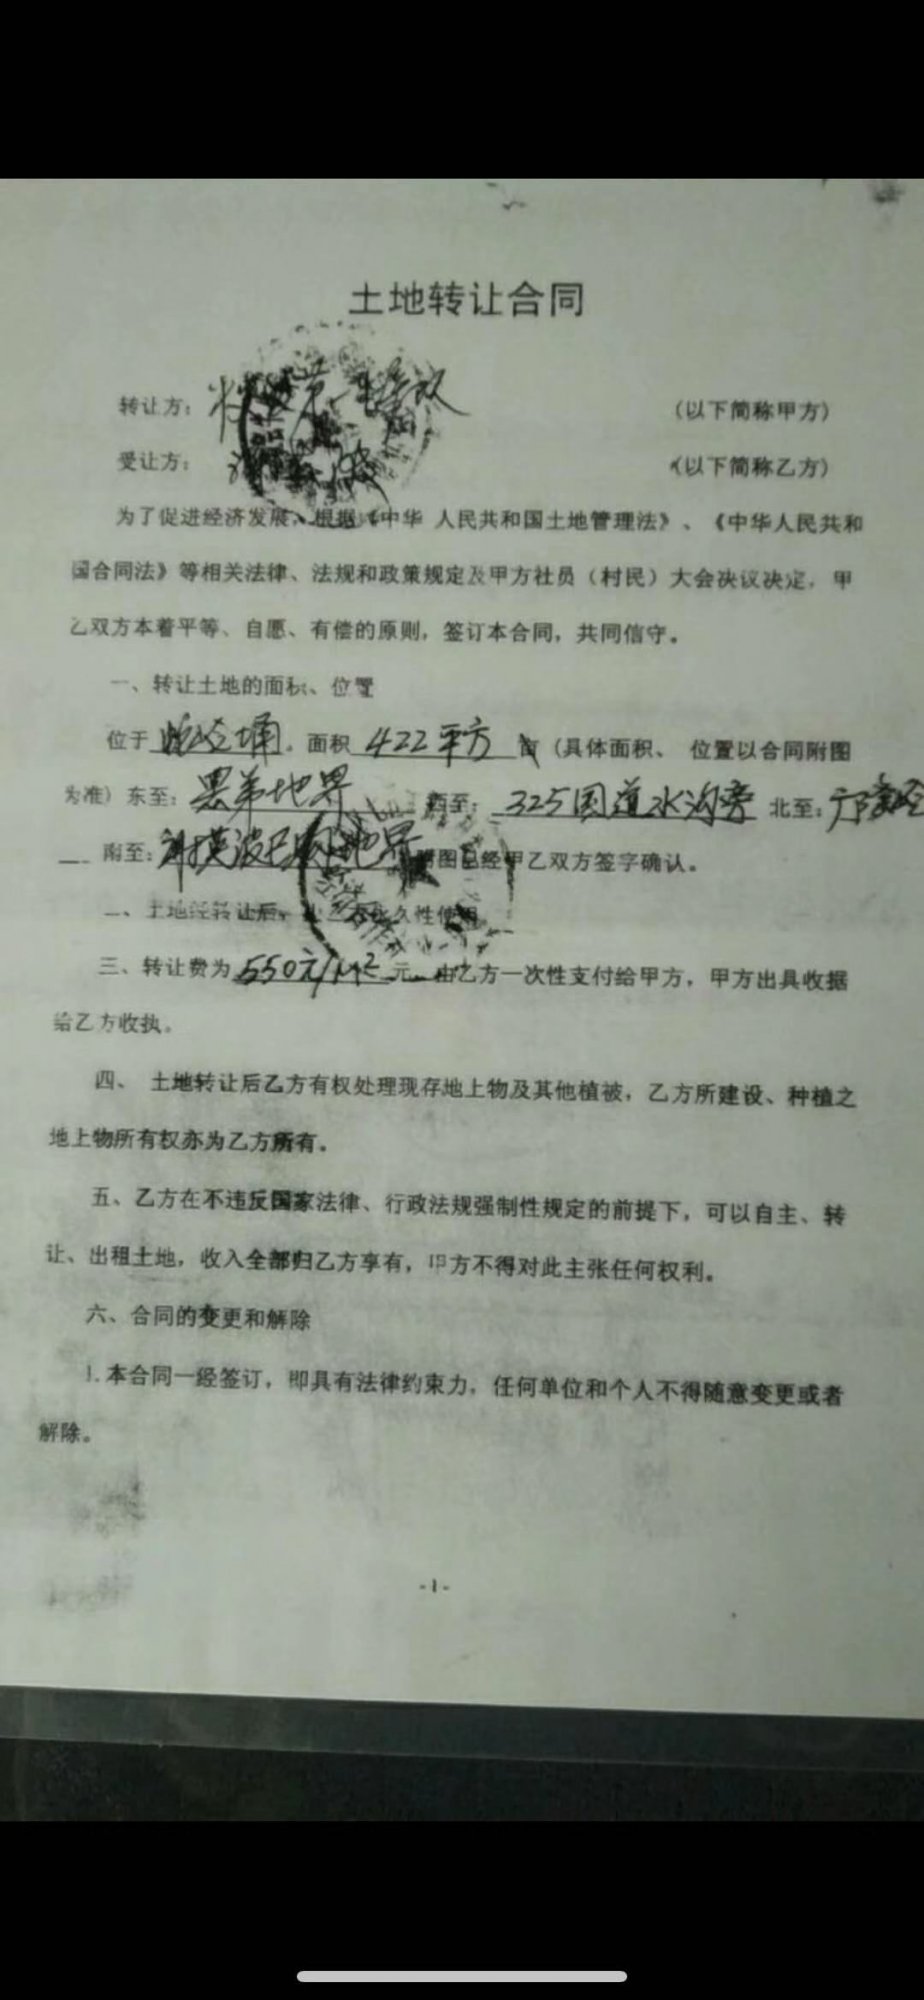 土地转让合同
转让方： （以下简称甲方）
受让方： （以下简称乙方）
为了促进经济发展、根据《中华 人民共和国土地管理法》、《中华人民共和
国合同法》等相关法律、法规和政策规定及甲方社员（村民）大会决议决定，甲
乙双方本着平等、自愿、有偿的原则，签订本合同，共同信守。
一、转让土地的面积、位置
位于 面积 422平方 亩（具体面积、 位置以合同附图
为准）东至： 地界 西至： 325国道水沟旁 北至：
南至： 地界 附图已经甲乙双方签字确认。
二、土地经转让后， 永久性使用
三、转让费为 550元/M² 元 由乙方一次性支付给甲方，甲方出具收据
给乙方收执。
四、 土地转让后乙方有权处理现存地上物及其他植被，乙方所建设、种植之
地上物所有权亦为乙方所有。
五、乙方在不违反国家法律、行政法规强制性规定的前提下，可以自主、转
让、出租土地，收入全部归乙方享有，甲方不得对此主张任何权利。
六、合同的变更和解除
1.本合同一经签订，即具有法律约束力，任何单位和个人不得随意变更或者
解除。
-1-